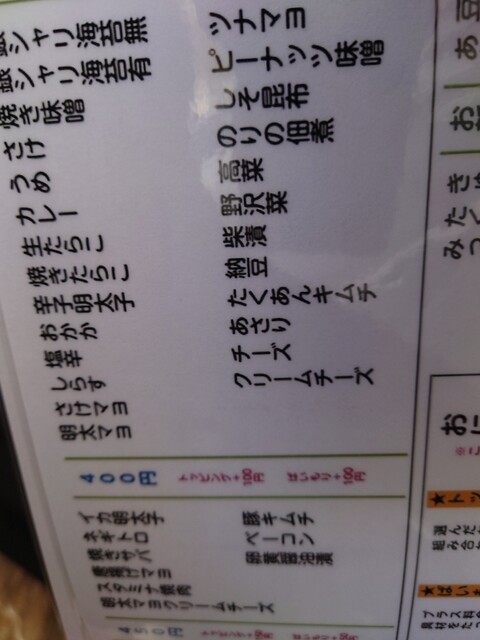 銀シャリ海苔無
銀シャリ海苔有
焼き味噌
さけ
うめ
カレー
生たらこ
焼きたらこ
辛子明太子
おかか
塩辛
しらす
さけマヨ
明太マヨ
ツナマヨ
ピーナッツ味噌
しそ昆布
のりの佃煮
高菜
野沢菜
柴漬
納豆
たくあんキムチ
あさり
チーズ
クリームチーズ
400円 トッピング+100円 ぱいもり+100円
イカ明太子
ネギトロ
焼きサバ
スタミナ焼肉
明太マヨクリームチーズ
豚キムチ
ベーコン
卵黄醤油漬
450円
豆
あ
お
き
たく
みつ
おに
※こ
★トッ
選んだ
組み合
★ぱいも
プラス料
具材をたっ